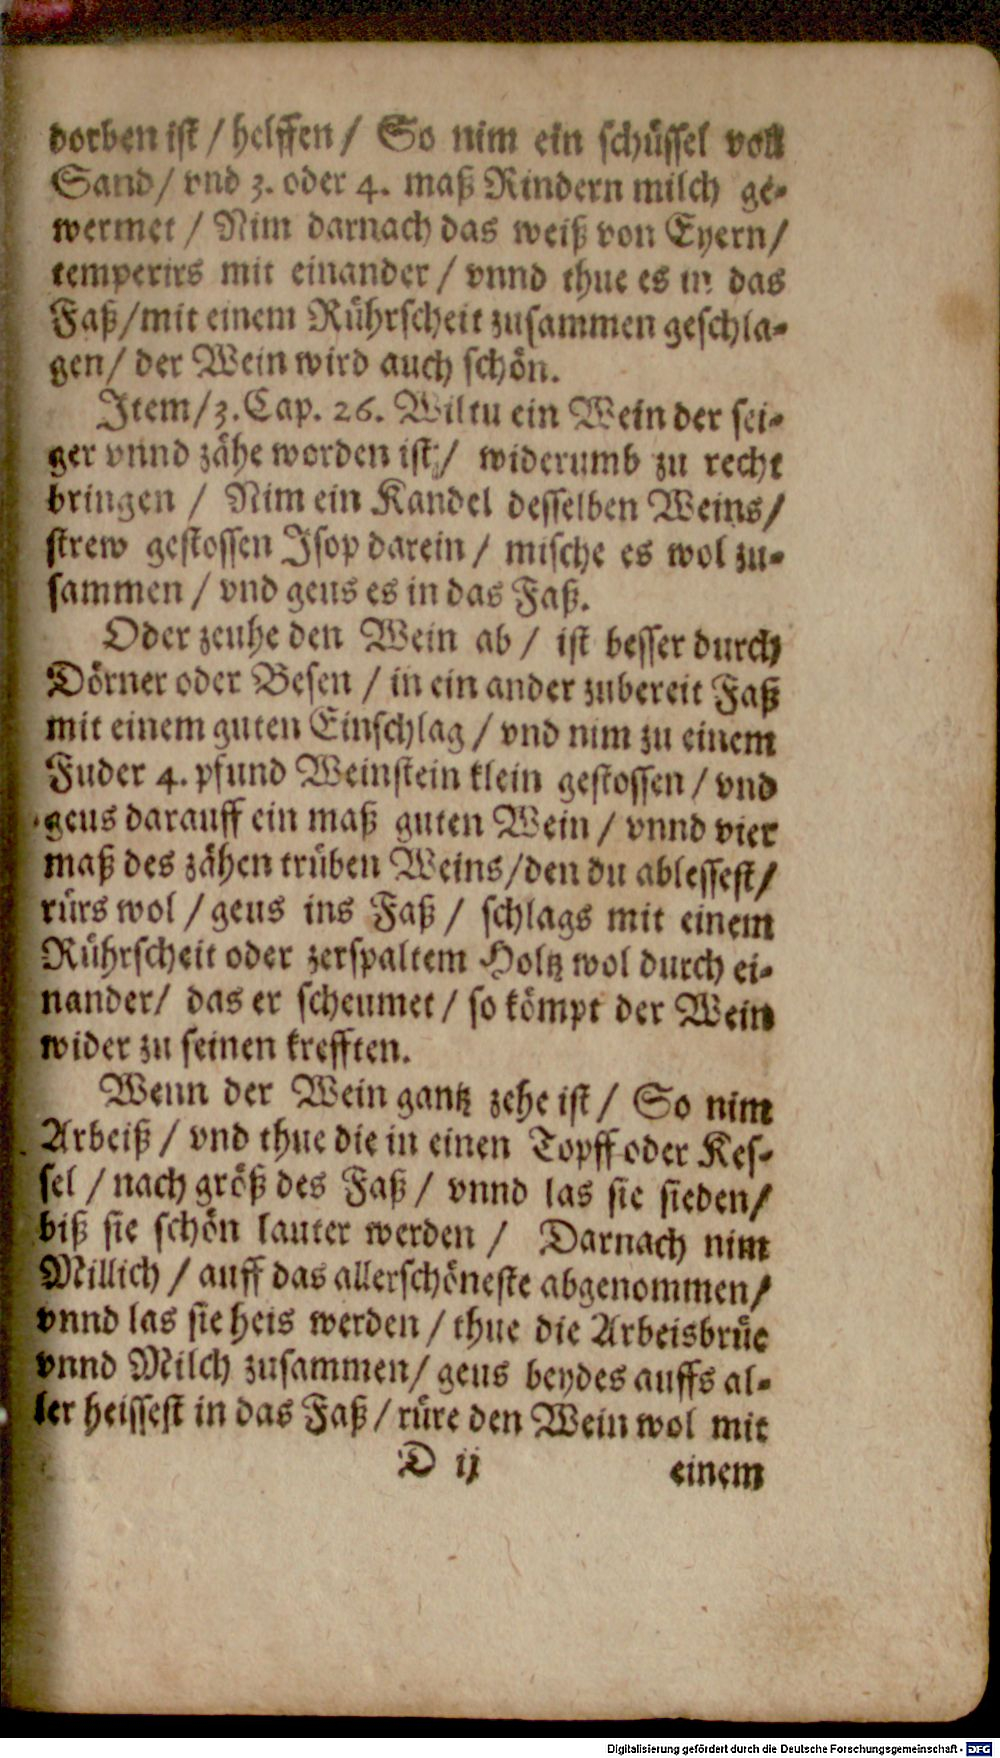 dorben ist / helffen / So nim ein schüssel voll
Sand / vnd 3. oder 4. maß Rindern milch ge-
wermet / Nim darnach das weiß von Eyern /
temperirs mit einander / vnnd thue es in das
Faß / mit einem Rührscheit zusammen geschla-
gen / der Wein wird auch schön.
Item / 3. Cap. 26. Wiltu ein Wein der sei-
ger vnnd zähe worden ist / widerumb zu recht
bringen / Nim ein Kandel desselben Weins /
strew gestossen Isop darein / mische es wol zu-
sammen / vnd geus es in das Faß.
Oder zeuhe den Wein ab / ist besser durch
Dörner oder Besen / in ein ander zubereit Faß
mit einem guten Einschlag / vnd nim zu einem
Fuder 4. pfund Weinstein klein gestossen / vnd
geus darauff ein maß guten Wein / vnnd vier
maß des zähen trüben Weins / den du ablessest /
rürs wol / geus ins Faß / schlags mit einem
Rührscheit oder zerspaltem Holtz wol durch ei-
nander / das er scheumet / so kömpt der Wein
wider zu seinen krefften.
Wenn der Wein gantz zehe ist / So nim
Arbeiß / vnd thue die in einen Topff oder Kes-
sel / nach größ des Faß / vnnd las sie sieden /
biß sie schön lauter werden / Darnach nim
Millich / auff das allerschöneste abgenommen /
vnnd las sie heis werden / thue die Arbeisbrüe
vnnd Milch zusammen / geus beydes auffs al-
ler heissest in das Faß / rüre den Wein wol mit
D ij einem
Digitalisierung gefördert durch die Deutsche Forschungsgemeinschaft - DFG